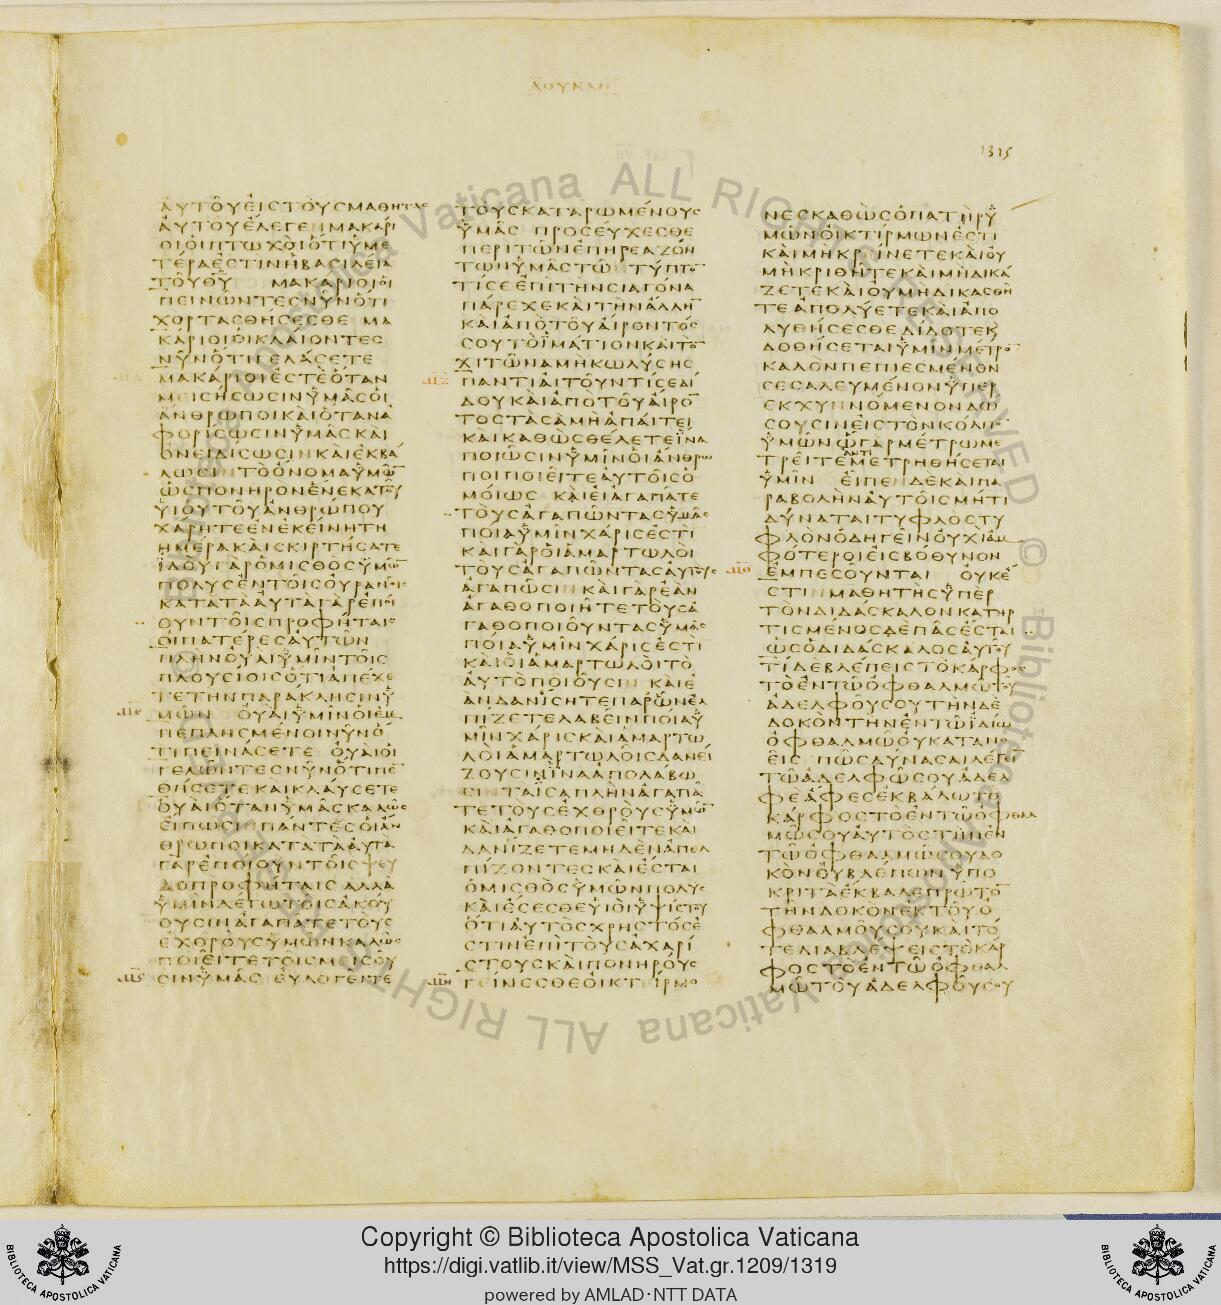 ΛΟΥΚΑΝ
1315
ΑΥΤΟΥΕΙΣΤΟΥΣΜΑΘΗΤΑΣ
ΑΥΤΟΥΕΛΕΓΕΝΜΑΚΑΡΙ
ΟΙΟΙΠΤΩΧΟΙΟΤΙΥΜΕ
ΤΕΡΑΕΣΤΙΝΗΒΑΣΙΛΕΙΑ
ΤΟΥΘΥ ΜΑΚΑΡΙΟΙΟΙ
ΠΕΙΝΩΝΤΕΣΝΥΝΟΤΙ
ΧΟΡΤΑΣΘΗΣΕΣΘΕ ΜΑ
ΚΑΡΙΟΙΟΙΚΛΑΙΟΝΤΕΣ
ΝΥΝΟΤΙΓΕΛΑΣΕΤΕ
ΜΑΚΑΡΙΟΙΕΣΤΕΟΤΑΝ
ΜΕΙΣΗΣΩΣΙΝΥΜΑΣΟΙ
ΑΝΘΡΩΠΟΙΚΑΙΟΤΑΝΑ
ΦΟΡΙΣΩΣΙΝΥΜΑΣΚΑΙ
ΟΝΕΙΔΙΣΩΣΙΝΚΑΙΕΚΒΑ
ΛΩΣΙΝΤΟΟΝΟΜΑΥΜΩ̅
ΩΣΠΟΝΗΡΟΝΕΝΕΚΑΤΟΥ
ΥΙΟΥΤΟΥΑΝΘΡΩΠΟΥ
ΧΑΡΗΤΕΕΝΕΚΕΙΝΗΤΗ
ΗΜΕΡΑΚΑΙΣΚΙΡΤΗΣΑΤΕ
ΙΔΟΥΓΑΡΟΜΙΣΘΟΣΥΜΩ̅
ΠΟΛΥΣΕΝΤΟΙΣΟΥΡΑΝΟΙΣ
ΚΑΤΑΤΑΑΥΤΑΓΑΡΕΠΟΙ
ΟΥΝΤΟΙΣΠΡΟΦΗΤΑΙΣ
ΟΙΠΑΤΕΡΕΣΑΥΤΩΝ
ΠΛΗΝΟΥΑΙΥΜΙΝΤΟΙΣ
ΠΛΟΥΣΙΟΙΣΟΤΙΑΠΕΧΕ
ΤΕΤΗΝΠΑΡΑΚΛΗΣΙΝΥ
ΜΩΝ ΟΥΑΙΥΜΙΝΟΙΕΜ
ΠΕΠΛΗΣΜΕΝΟΙΝΥΝΟ
ΤΙΠΕΙΝΑΣΕΤΕ ΟΥΑΙΟΙ
ΓΕΛΩΝΤΕΣΝΥΝΟΤΙΠΕ̅
ΘΗΣΕΤΕΚΑΙΚΛΑΥΣΕΤΕ
ΟΥΑΙΟΤΑΝΥΜΑΣΚΑΛΩΣ
ΕΙΠΩΣΙΝΠΑΝΤΕΣΟΙΑΝ
ΘΡΩΠΟΙΚΑΤΑΤΑΑΥΤΑ
ΓΑΡΕΠΟΙΟΥΝΤΟΙΣΨΕΥ
ΔΟΠΡΟΦΗΤΑΙΣ ΑΛΛΑ
ΥΜΙΝΛΕΓΩΤΟΙΣΑΚΟΥ
ΟΥΣΙΝΑΓΑΠΑΤΕΤΟΥΣ
ΕΧΘΡΟΥΣΥΜΩΝΚΑΛΩΣ
ΠΟΙΕΙΤΕΤΟΙΣΜΙΣΟΥ
ΣΙΝΥΜΑΣ ΕΥΛΟΓΕΙΤΕ
ΤΟΥΣΚΑΤΑΡΩΜΕΝΟΥΣ
ΥΜΑΣ ΠΡΟΣΕΥΧΕΣΘΕ
ΠΕΡΙΤΩΝΕΠΗΡΕΑΖΟΝ
ΤΩΝΥΜΑΣΤΩ ΤΥΠΤΟ̅
ΤΙΣΕΕΠΙΤΗΝΣΙΑΓΟΝΑ
ΠΑΡΕΧΕΚΑΙΤΗΝΑΛΛΗ̅
ΚΑΙΑΠΟΤΟΥΑΙΡΟΝΤΟΣ
ΣΟΥΤΟΙΜΑΤΙΟΝΚΑΙΤΟ̅
ΧΙΤΩΝΑΜΗΚΩΛΥΣΗΣ
ΠΑΝΤΙΑΙΤΟΥΝΤΙΣΕΔΙ
ΔΟΥΚΑΙΑΠΟΤΟΥΑΙΡΟ̅
ΤΟΣΤΑΣΑΜΗΑΠΑΙΤΕΙ
ΚΑΙΚΑΘΩΣΘΕΛΕΤΕΙΝΑ
ΠΟΙΩΣΙΝΥΜΙΝΟΙΑΝΘΡΩ
ΠΟΙΠΟΙΕΙΤΕΑΥΤΟΙΣΟ
ΜΟΙΩΣ ΚΑΙΕΙΑΓΑΠΑΤΕ
ΤΟΥΣΑΓΑΠΩΝΤΑΣΥΜΑΣ
ΠΟΙΑΥΜΙΝΧΑΡΙΣΕΣΤΙ
ΚΑΙΓΑΡΟΙΑΜΑΡΤΩΛΟΙ
ΤΟΥΣΑΓΑΠΩΝΤΑΣΑΥΤΟΥΣ
ΑΓΑΠΩΣΙΝΚΑΙΓΑΡΕΑΝ
ΑΓΑΘΟΠΟΙΗΤΕΤΟΥΣΑ
ΓΑΘΟΠΟΙΟΥΝΤΑΣΥΜΑΣ
ΠΟΙΑΥΜΙΝΧΑΡΙΣΕΣΤΙ
ΚΑΙΟΙΑΜΑΡΤΩΛΟΙΤΟ
ΑΥΤΟΠΟΙΟΥΣΙΝΚΑΙΕ
ΑΝΔΑΝΙΣΗΤΕΠΑΡΩΝΕΛ
ΠΙΖΕΤΕΛΑΒΕΙΝΠΟΙΑΥ
ΜΙΝΧΑΡΙΣΚΑΙΑΜΑΡΤΩ
ΛΟΙΑΜΑΡΤΩΛΟΙΣΔΑΝΕΙ
ΖΟΥΣΙΝΙΝΑΑΠΟΛΑΒΩ
ΣΙΝΤΑΙΣΑΠΛΗΝΑΓΑΠΑ
ΤΕΤΟΥΣΕΧΘΡΟΥΣΥΜΩ̅
ΚΑΙΑΓΑΘΟΠΟΙΕΙΤΕΚΑΙ
ΔΑΝΙΖΕΤΕΜΗΔΕΝΑΠΕΛ
ΠΙΖΟΝΤΕΣΚΑΙΕΣΤΑΙ
ΟΜΙΣΘΟΣΥΜΩΝΠΟΛΥΣ
ΚΑΙΕΣΕΣΘΕΥΙΟΙΥΨΙΣΤΟΥ
ΟΤΙΑΥΤΟΣΧΡΗΣΤΟΣΕ
ΣΤΙΝΕΠΙΤΟΥΣΑΧΑΡΙ
ΣΤΟΥΣΚΑΙΠΟΝΗΡΟΥΣ
ΓΕΙΝΕΣΘΕΟΙΚΤΕΙΡΜΟ
ΝΕΣΚΑΘΩΣΟΠΑΤΗΡΥ
ΜΩΝΟΙΚΤΙΡΜΩΝΕΣΤΙ
ΚΑΙΜΗΚΡΕΙΝΕΤΕΚΑΙΟΥ
ΜΗΚΡΙΘΗΤΕΚΑΙΜΗΔΙΚΑ
ΖΕΤΕΚΑΙΟΥΜΗΔΙΚΑΣΘΗ
ΤΕΑΠΟΛΥΕΤΕΚΑΙΑΠΟ
ΛΥΘΗΣΕΣΘΕΔΙΔΟΤΕΚ
ΔΟΘΗΣΕΤΑΙΥΜΙΝΜΕΤΡΟ̅
ΚΑΛΟΝΠΕΠΙΕΣΜΕΝΟΝ
ΣΕΣΑΛΕΥΜΕΝΟΝΥΠΕΡ
ΕΚΧΥΝΝΟΜΕΝΟΝΔΩ
ΣΟΥΣΙΝΕΙΣΤΟΝΚΟΛΠΟ̅
ΥΜΩΝΩΓΑΡΜΕΤΡΩΜΕ
ΑΝΤΙ
ΤΡΕΙΤΕΜΕΤΡΗΘΗΣΕΤΑΙ
ΥΜΙΝ ΕΙΠΕΝΔΕΚΑΙΠΑ
ΡΑΒΟΛΗΝΑΥΤΟΙΣΜΗΤΙ
ΔΥΝΑΤΑΙΤΥΦΛΟΣΤΥ
ΦΛΟΝΟΔΗΓΕΙΝΟΥΧΙΑΜ
ΦΟΤΕΡΟΙΕΙΣΒΟΘΥΝΟΝ
ΕΜΠΕΣΟΥΝΤΑΙ ΟΥΚΕ
ΣΤΙΝΜΑΘΗΤΗΣΥΠΕΡ
ΤΟΝΔΙΔΑΣΚΑΛΟΝΚΑΤΗΡ
ΤΙΣΜΕΝΟΣΔΕΠΑΣΕΣΤΑΙ
ΩΣΟΔΙΔΑΣΚΑΛΟΣΑΥΤΟΥ
ΤΙΔΕΒΛΕΠΕΙΣΤΟΚΑΡΦΟΣ
ΤΟΕΝΤΩΟΦΘΑΛΜΩΤΟΥ
ΑΔΕΛΦΟΥΣΟΥΤΗΝΔΕ
ΔΟΚΟΝΤΗΝΕΝΤΩΙΔΙΩ
ΟΦΘΑΛΜΩΟΥΚΑΤΑΝΟ
ΕΙΣ ΠΩΣΔΥΝΑΣΑΙΛΕΓΕΙ̅
ΤΩΑΔΕΛΦΩΣΟΥΑΔΕΛ
ΦΕΑΦΕΣΕΚΒΑΛΩΤΟ
ΚΑΡΦΟΣΤΟΕΝΤΩΟΦΘΑΛ
ΜΩΣΟΥΑΥΤΟΣΤΗΝΕΝ
ΤΩΟΦΘΑΛΜΩΣΟΥΔΟ
ΚΟΝΟΥΒΛΕΠΩΝΥΠΟ
ΚΡΙΤΑΕΚΒΑΛΕΠΡΩΤΟ̅
ΤΗΝΔΟΚΟΝΕΚΤΟΥΟ
ΦΘΑΛΜΟΥΣΟΥΚΑΙΤΟ
ΤΕΔΙΑΒΛΕΨΕΙΣΤΟΚΑΡ
ΦΟΣΤΟΕΝΤΩΟΦΘΑΛ
ΜΩΤΟΥΑΔΕΛΦΟΥΣΟΥ
Copyright © Biblioteca Apostolica Vaticana
https://digi.vatlib.it/view/MSS_Vat.gr.1209/1319
powered by AMLAD·NTT DATA
BIBLIOTECA APOSTOLICA VATICANA
BIBLIOTECA APOSTOLICA VATICANA